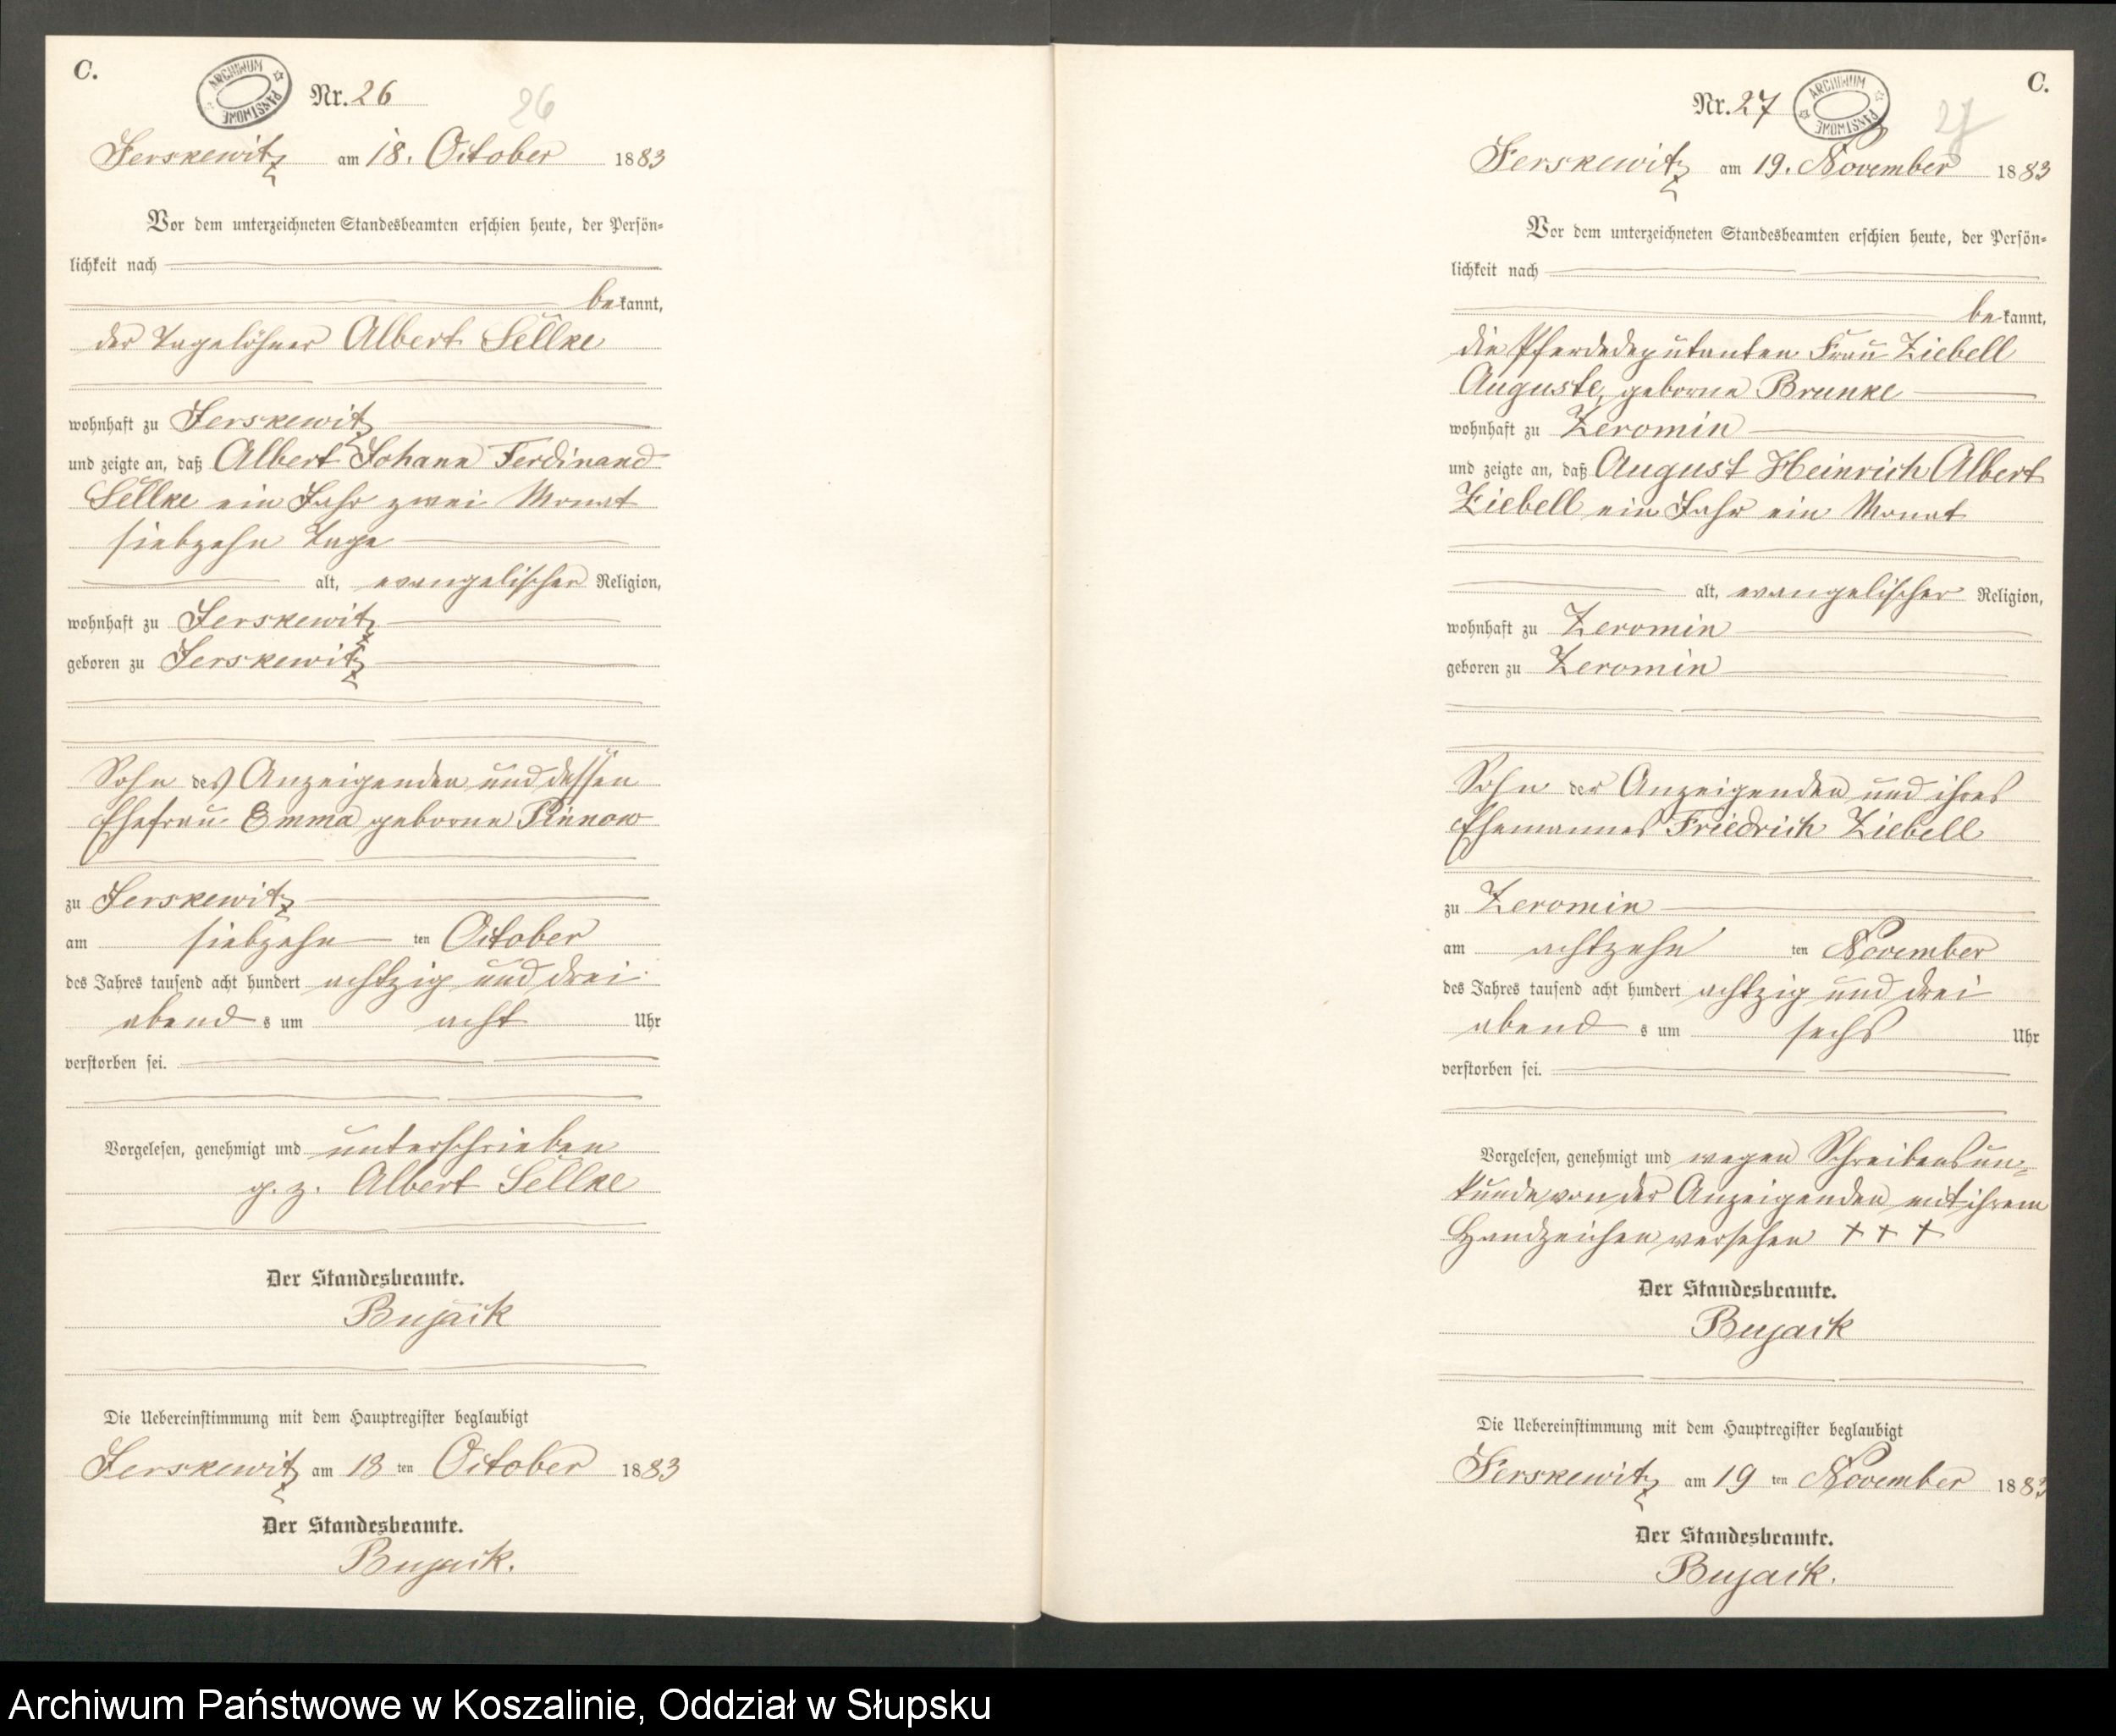 C.
ARCHIWUM PAŃSTWOWE
Nr. 26
26
Jerskewitz am 18. October 1883
Vor dem unterzeichneten Standesbeamten erschien heute, der Persön-
lichkeit nach
bekannt,
der Tagelöhner Albert Sellke
wohnhaft zu Jerskewitz
und zeigte an, daß Albert Johann Ferdinand
Sellke ein Jahr zwei Monat
siebzehn Tage
alt, evangelischer Religion,
wohnhaft zu Jerskewitz
geboren zu Jerskewitz
Sohn des Anzeigenden und dessen
Ehefrau Emma geborne Pinnow
zu Jerskewitz
am siebzehn ten October
des Jahres tausend acht hundert achtzig und drei
abends um acht Uhr
verstorben sei.
Vorgelesen, genehmigt und unterschrieben
g. z. Albert Sellke
Der Standesbeamte.
Bujack
Die Uebereinstimmung mit dem Hauptregister beglaubigt
Jerskewitz am 18 ten October 1883
Der Standesbeamte.
Bujack.
C.
Nr. 27
ARCHIWUM PAŃSTWOWE
27
Jerskewitz am 19. November 1883
Vor dem unterzeichneten Standesbeamten erschien heute, der Persön-
lichkeit nach
bekannt,
die Pferdedeputanten Frau Ziebell
Auguste, geborne Brunke
wohnhaft zu Zeromin
und zeigte an, daß August Heinrich Albert
Ziebell ein Jahr ein Monat
alt, evangelischer Religion,
wohnhaft zu Zeromin
geboren zu Zeromin
Sohn der Anzeigenden und ihres
Ehemannes Friedrich Ziebell
zu Zeromin
am achtzehn ten November
des Jahres tausend acht hundert achtzig und drei
abends um sechs Uhr
verstorben sei.
Vorgelesen, genehmigt und wegen Schreibensun-
kunde von der Anzeigenden mit ihrem
Handzeichen versehen + + +
Der Standesbeamte.
Bujack
Die Uebereinstimmung mit dem Hauptregister beglaubigt
Jerskewitz am 19 ten November 1883
Der Standesbeamte.
Bujack.
Archiwum Państwowe w Koszalinie, Oddział w Słupsku